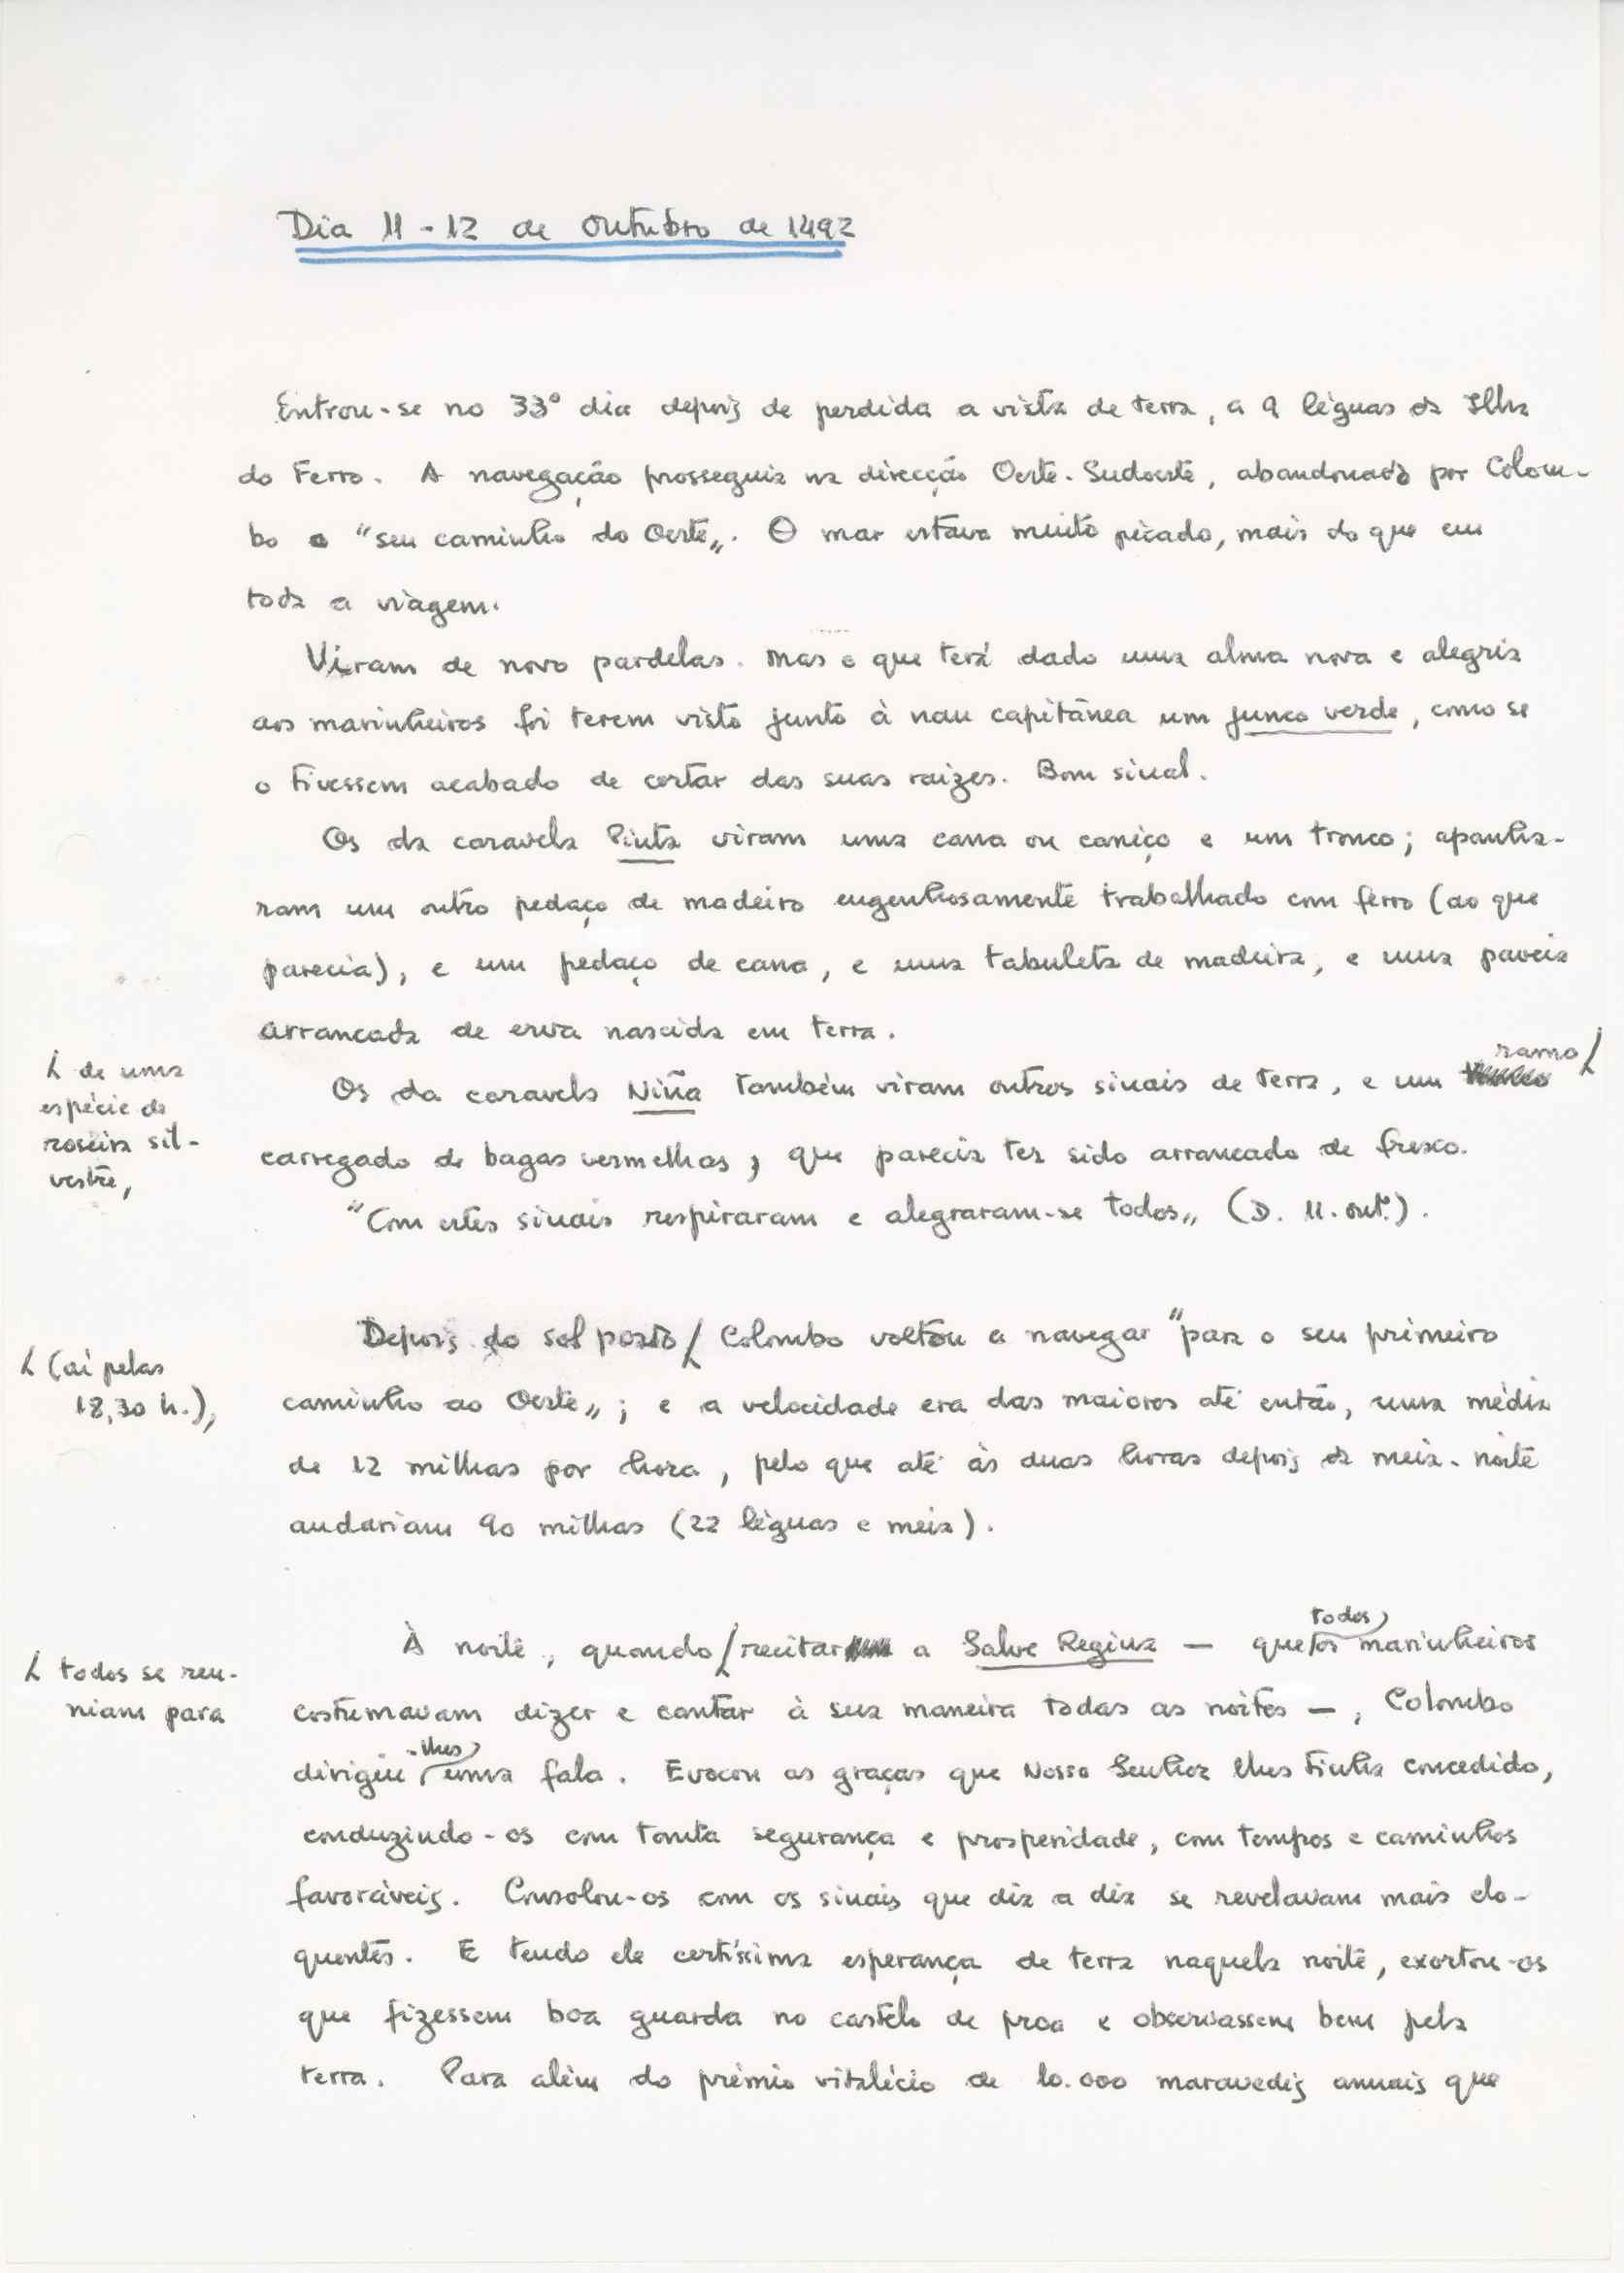 Dia 11-12 de Outubro de 1492
Entrou-se no 33º dia depois de perdida a vista de terra, a 9 léguas da Ilha
do Ferro. A navegação prosseguia na direcção Oeste-Sudoeste, abandonado por Colom-
bo o "seu caminho do Oeste". O mar estava muito picado, mais do que em
toda a viagem.
Viram de novo pardelas. Mas o que terá dado uma alma nova e alegria
aos marinheiros foi terem visto junto à nau capitânea um junco verde, como se
o tivessem acabado de cortar das suas raizes. Bom sinal.
Os da caravela Pinta viram uma cana ou caniço e um tronco; apanha-
ram um outro pedaço de madeiro engenhosamente trabalhado com ferro (ao que
parecia), e um pedaço de cana, e uma tabuleta de madeira, e uma paveia
arrancada de erva nascida em terra.
ramo
Os da caravela Niña também viram outros sinais de terra, e um
de uma
espécie de
roseira sil-
vestre,
carregado de bagas vermelhas, que parecia ter sido arrancado de fresco.
"Com estes sinais respiraram e alegraram-se todos" (D. 11.out.º).
Depois do sol posto Colombo voltou a navegar "para o seu primeiro
(aí pelas
18,30 h.),
caminho ao Oeste"; e a velocidade era das maiores até então, uma média
de 12 milhas por hora, pelo que até às duas horas depois da meia-noite
andariam 90 milhas (22 léguas e meia).
todos
À noite, quando recitar a Salve Regina — que os marinheiros
todos se reu-
niam para
costumavam dizer e cantar à sua maneira todas as noites —, Colombo
-lhes
dirigiu uma fala. Evocou as graças que Nosso Senhor lhes tinha concedido,
conduzindo-os com tanta segurança e prosperidade, com tempos e caminhos
favoráveis. Consolou-os com os sinais que dia a dia se revelavam mais elo-
quentes. E tendo ele certíssima esperança de terra naquela noite, exortou-os
que fizessem boa guarda no castelo de proa e observassem bem pela
terra. Para além do prémio vitalício de 10.000 maravedis anuais que